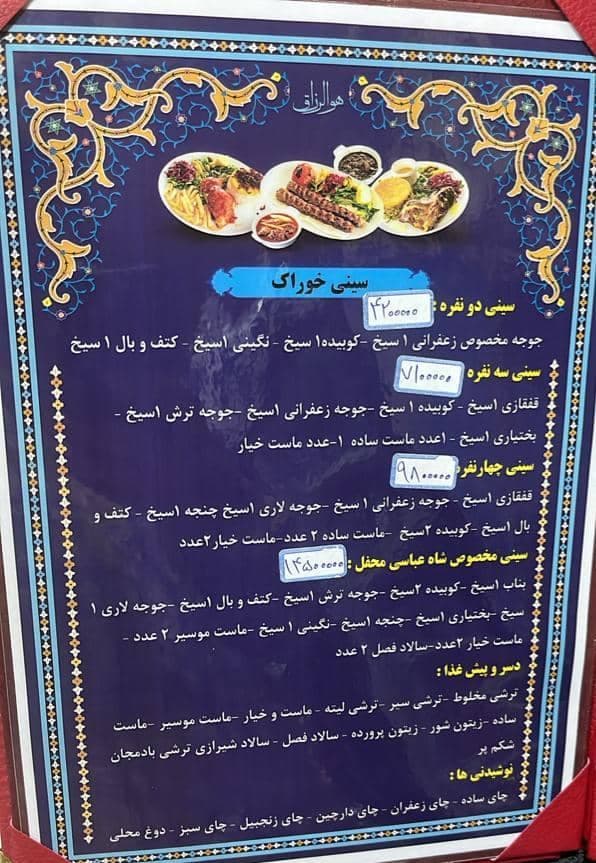 هوالرزاق
سینی خوراک
سینی دو نفره : ۴۲۰۰۰۰۰
جوجه مخصوص زعفرانی ۱ سیخ -کوبیده۱ سیخ - نگینی ۱سیخ - کتف و بال ۱ سیخ
سینی سه نفره ۷۱۰۰۰۰۰
قفقازی ۱سیخ - کوبیده ۱ سیخ -جوجه زعفرانی ۱سیخ -جوجه ترش ۱سیخ -
بختیاری ۱سیخ - ۱عدد ماست ساده ۱-عدد ماست خیار
سینی چهارنفره ۹۸۰۰۰۰۰
قفقازی ۱سیخ - جوجه زعفرانی ۱ سیخ -جوجه لاری ۱سیخ چنجه ۱سیخ - کتف و
بال ۱سیخ -کوبیده ۲سیخ -ماست ساده ۲ عدد-ماست خیار۲عدد
سینی مخصوص شاه عباسی محفل : ۱۴۵۰۰۰۰۰
بناب ۱سیخ -کوبیده ۲سیخ -جوجه ترش ۱سیخ -کتف و بال ۱سیخ -جوجه لاری ۱
سیخ -بختیاری ۱سیخ -چنجه ۱سیخ -نگینی ۱ سیخ -ماست موسیر ۲ عدد -
ماست خیار ۲عدد-سالاد فصل ۲ عدد
دسر و پیش غذا :
ترشی مخلوط -ترشی سیر -ترشی لیته - ماست و خیار -ماست موسیر -ماست
ساده -زیتون شور - زیتون پرورده - سالاد فصل - سالاد شیرازی ترشی بادمجان
شکم پر
نوشیدنی ها :
چای ساده - چای زعفران - چای دارچین - چای زنجبیل - چای سبز - دوغ محلی